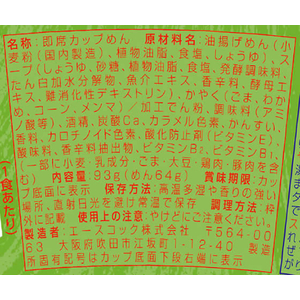 名称：即席カップめん 原材料名：油揚げめん(小
麦粉(国内製造)、植物油脂、食塩、しょうゆ)、ス
ープ(しょうゆ、砂糖、植物油脂、食塩、発酵調味料、
たん白加水分解物、魚介エキス、香辛料、酵母エ
キス、難消化性デキストリン)、かやく(ごま、わか
め、コーン、メンマ)/加工でん粉、調味料(アミ
ノ酸等)、酒精、炭酸Ca、カラメル色素、かんすい、
香料、カロチノイド色素、酸化防止剤(ビタミンE)、
酸味料、香辛料抽出物、ビタミンB2、ビタミンB1、
(一部に小麦、乳成分・ごま・大豆・鶏肉・豚肉を含
む) 内容量：93g(めん64g) 賞味期限：カッ
プ底面に表示 保存方法：高温多湿や香りの強い
場所、直射日光を避け常温で保存 調理方法：枠
外に記載 使用上の注意：やけどにご注意ください。
製造者：エースコック株式会社 〒564-00
63 大阪府吹田市江坂町1-12-40 製造
所固有記号はカップ底面下段右端に表示
1食あたり